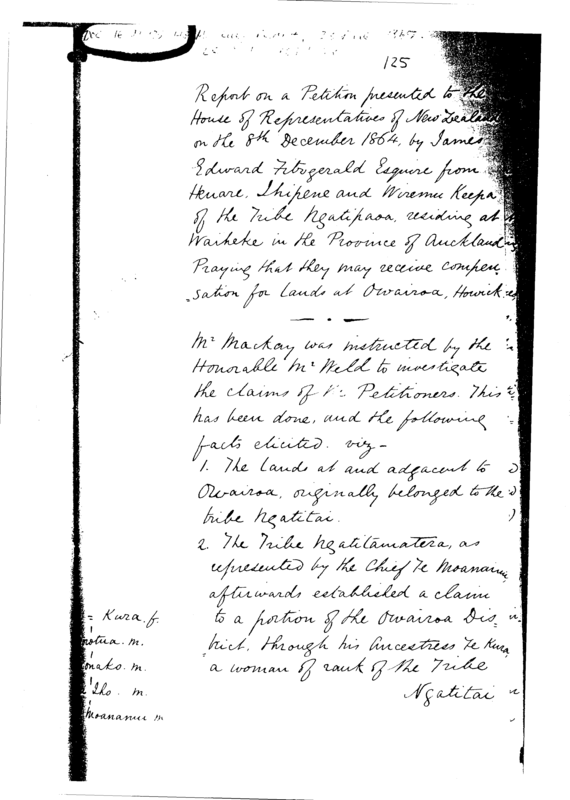 125
Report on a Petition presented to the
House of Representatives of New Zealand
on the 8th December 1864, by James
Edward Fitzgerald Esquire from
Henare, Ihipene and Wiremu Keepa
of the Tribe Ngatipaoa, residing at
Waiheke in the Province of Auckland
Praying that they may receive compen
sation for lands at Owairoa, Howick
Mr Mackay was instructed by the
Honorable Mr Weld to investigate
the claims of Petitioners. This
has been done, and the following
facts elicited. viz -
1. The lands at and adjacent to
Owairoa, originally belonged to the
tribe Ngatitai.
2. The Tribe Ngatitamatera, as
represented by the Chief Te Moananui
afterwards established a claim
to a portion of the Owairoa Dis
trict, through his Ancestress Te Kura
a woman of rank of the Tribe
Ngatitai
= Kura. f.
m.
m.
Iho. m.
Moananui m